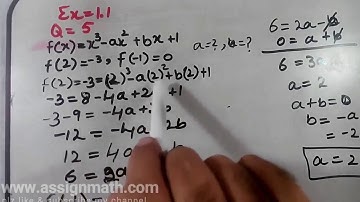 Ex=1.1
Q=5
f(x)=x³-ax²+bx+1
f(2)=-3, f(-1)=0
a=?, b=?
f(2)=-3=(2)³-a(2)²+b(2)+1
-3=8-4a+2 +1
-3-9=-4a+
-12=-4a 2b
12=4a
6=2a
6=2a-b
0=a+b
6=3a
a=2
a+b=0
b=-a
b=-2
a=2
www.assignmath.com
plz like & subscribe my channel